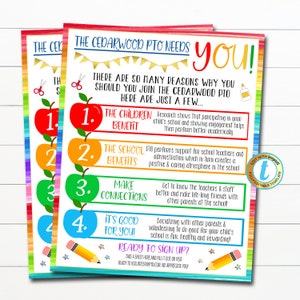 THE CEDARWOOD PTO NEEDS
YOU!
THERE ARE SO MANY REASONS WHY YOU
SHOULD YOU JOIN THE CEDARWOOD PTO
HERE ARE JUST A FEW...
1. THE CHILDREN BENEFIT
Research shows that participating in your
child's school and showing involvement helps
them perform better academically
2. THE SCHOOL BENEFITS
PTO
support the school teachers and
administration which in turn creates a
positive & caring atmosphere in the school
3. MAKE CONNECTIONS
Get to know the teachers & staff
better and make life-long friends with
other parents
4. IT'S GOOD FOR YOU!
Socializing with other parents &
volunteering to do good for your child's
school is fun, healthy and rewarding!
READY TO SIGN UP?